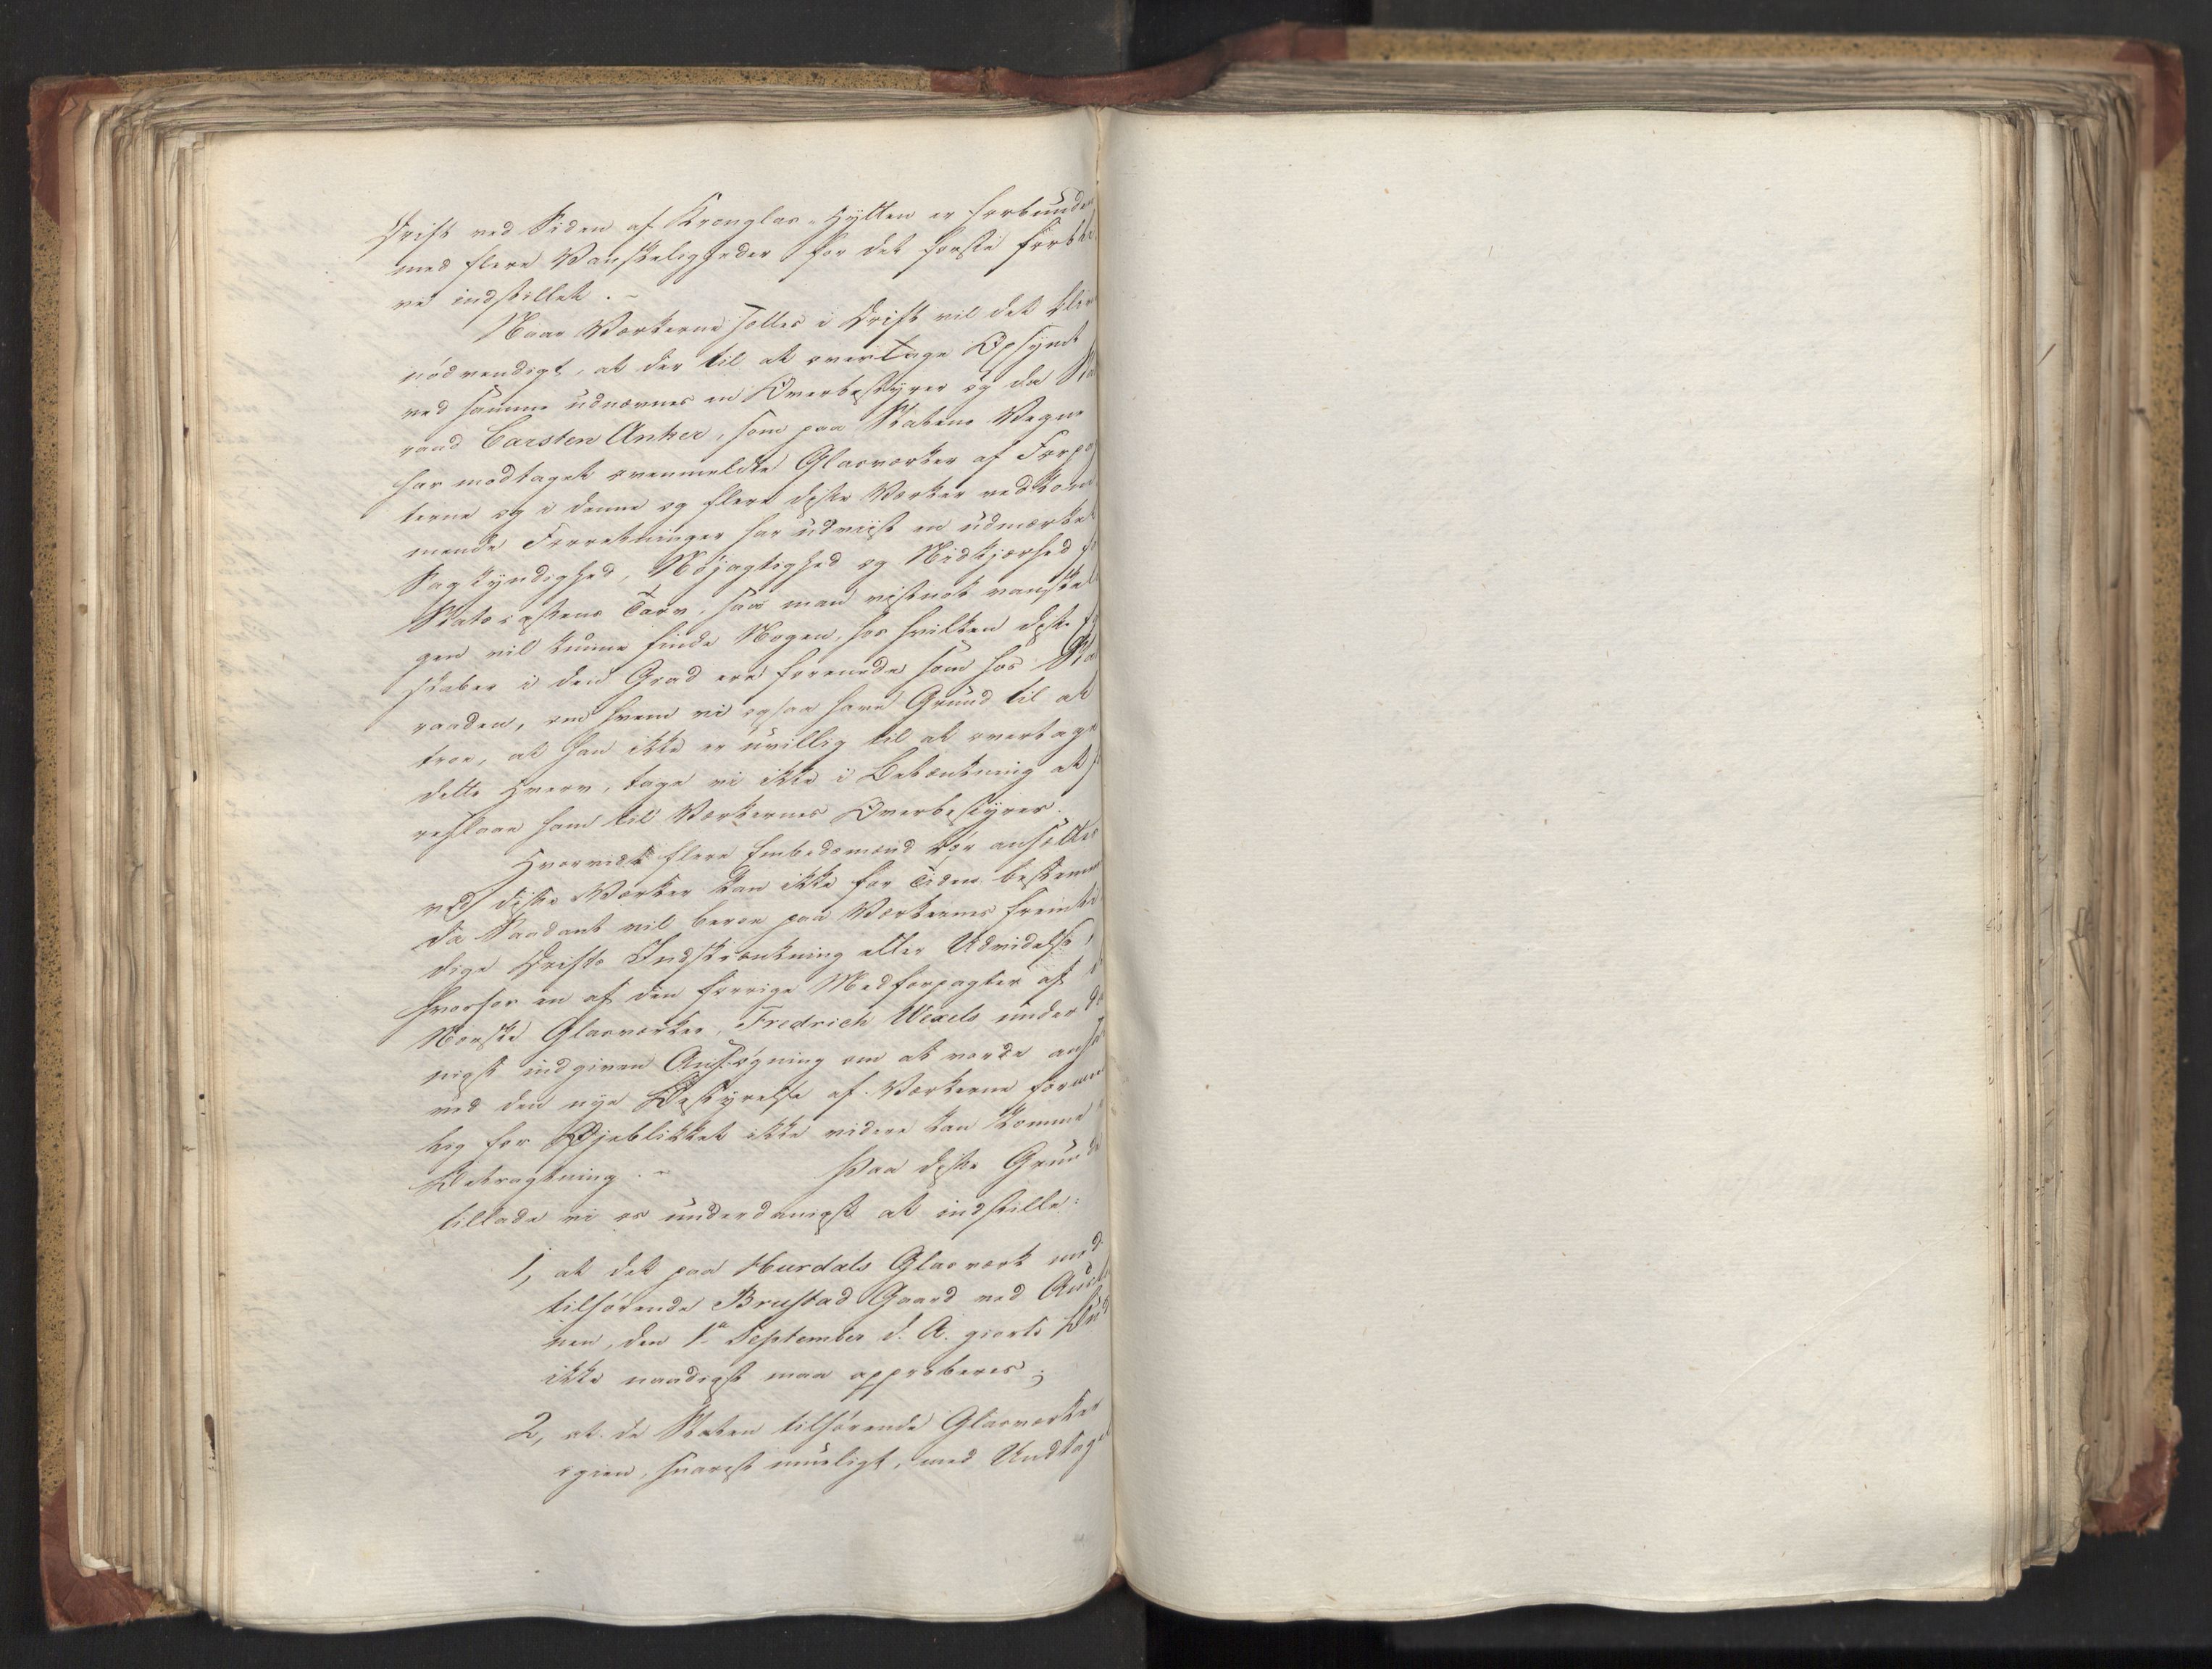 Drift ved Siden af Kronglas-Hytten er forbunden
med flere Vanskeligheder for det første forbli
ve indstillet. –
Naar Værkerne sættes i Drift vil det blive
nödvendigt, at der til at overtage Opsynet
ved samme udnævnes en Overbestyrer og da
raad Carsten Anker, som paa Statens Vegne
har modtaget ovenmeldte Glasværker af Forpag
terne og i denne og flere disse Værker vedkom
mende Forretninger har udviist en udmærket
Sagkyndighed, Nöjagtighed og Nidkjærhed
Statscassens Tarv, saa man vistnok vanskeli
gen vil kunne finde Nogen, hos hvilken disse
skaber i den Grad ere forenede som hos
raaden, om hvem vi ogsaa have Grund til at
troe, at han ikke er uvillig til at overtage
dette Hverv, tage vi ikke i Betænkning at
reslaae ham til Værkernes Overbestyrer.
Hvorvidt flere Embedsmænd bör ansættes
ved disse Værker kan ikke for Tiden bestemmes
da Saadant vil beroe paa Værkernes fremti
dige Drifts Indskrænkning eller Udvidelse,
hvorfor en af den forrige Medforpagter af
Norske Glasværker, Fredrich Wexels under
nigst indgiven Ansögning om at vorde
ved den nye Bestyrelse af Værkerne formeent
lig for Øjeblikket ikke videre kan komme
Betragtning. – Paa disse Grunde
tillade vi os underdanigst at indstille:
1, at det paa Hurdals Glasværk med
tilhörende Brustad Gaard ved
nen, den 1te September d. A. giorte Bud
ikke naadigst maa approberes;
2, at de Staten tilhörende Glasværker
igien, snarest mueligt, med Undtagel